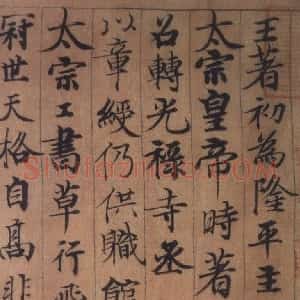 王著初為隆平主
太宗皇帝時著
召轉光禄寺丞
以章綬仍供職館
太宗工書草行飛
冠世天格自高非